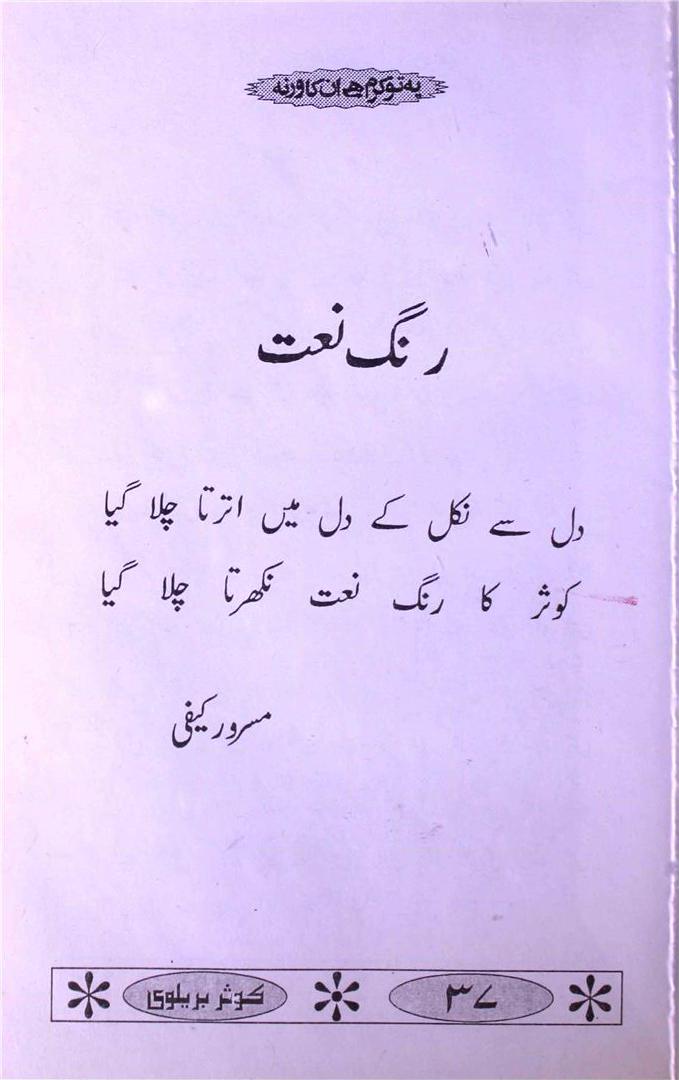 یہ تو کرم ہے ان کا ورنہ
رنگ نعت
دل سے نکل کے دل میں اترتا چلا گیا
کوثر کا رنگ نعت نکھرتا چلا گیا
مسرور کیفی
۳۷
کوثر بریلوی